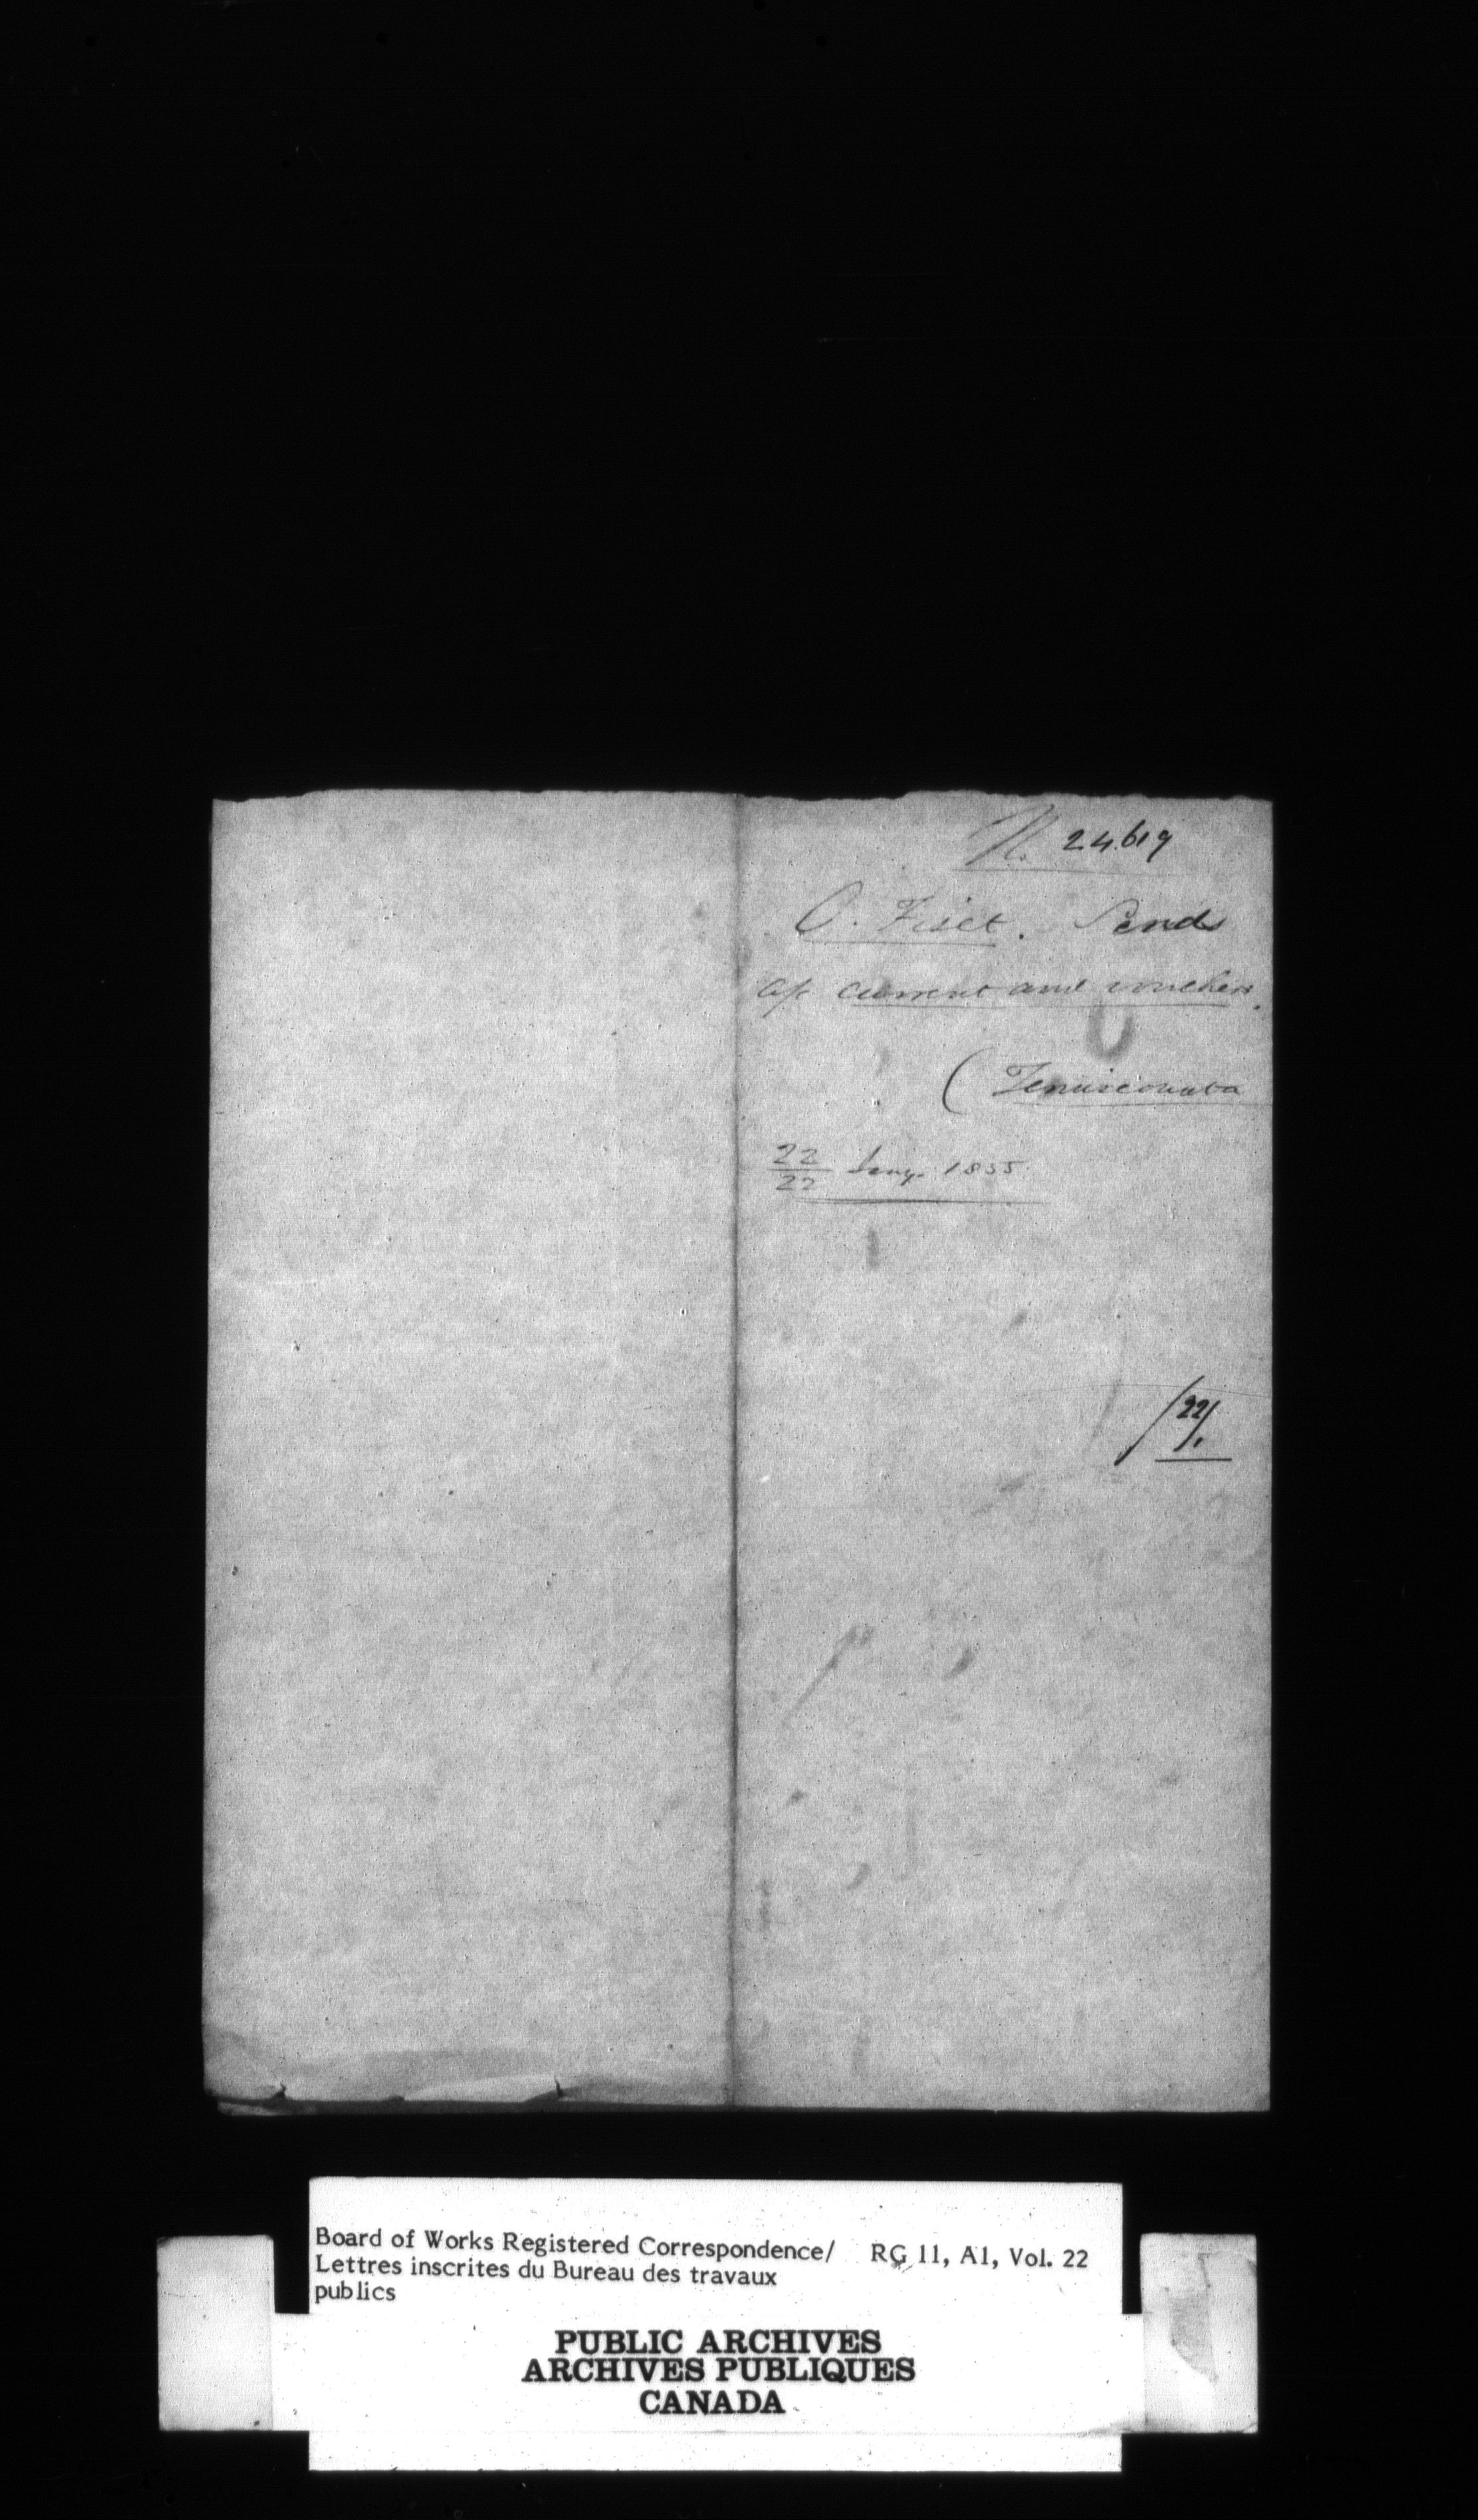 N. 24.619
O. Fiset. Sends
a/c current and vouchers.
(Temiscouata
22/22 Jany. 1855
/22/.
Board of Works Registered Correspondence/ RG 11, A1, Vol. 22
Lettres inscrites du Bureau des travaux
publics
PUBLIC ARCHIVES
ARCHIVES PUBLIQUES
CANADA